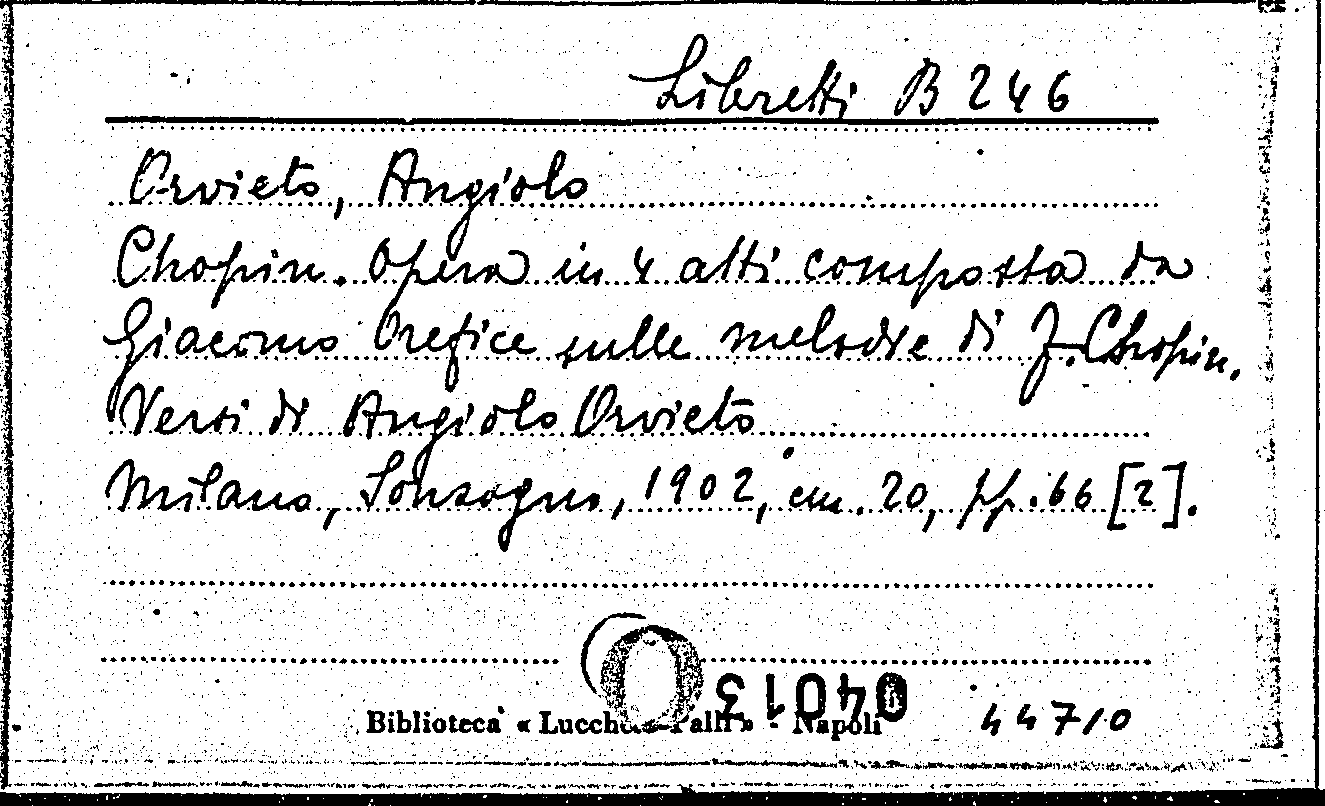 Libretti B 246
Orvieto, Angiolo
Chopin. Opera in 4 atti composta da
Giacomo Orefice sulle melodie di F. Chopin.
Versi di Angiolo Orvieto
Milano, Sonzogno, 1902, cm. 20, pp. 66 [2].
04013
Biblioteca « Lucchesi-Palli » - Napoli
44710